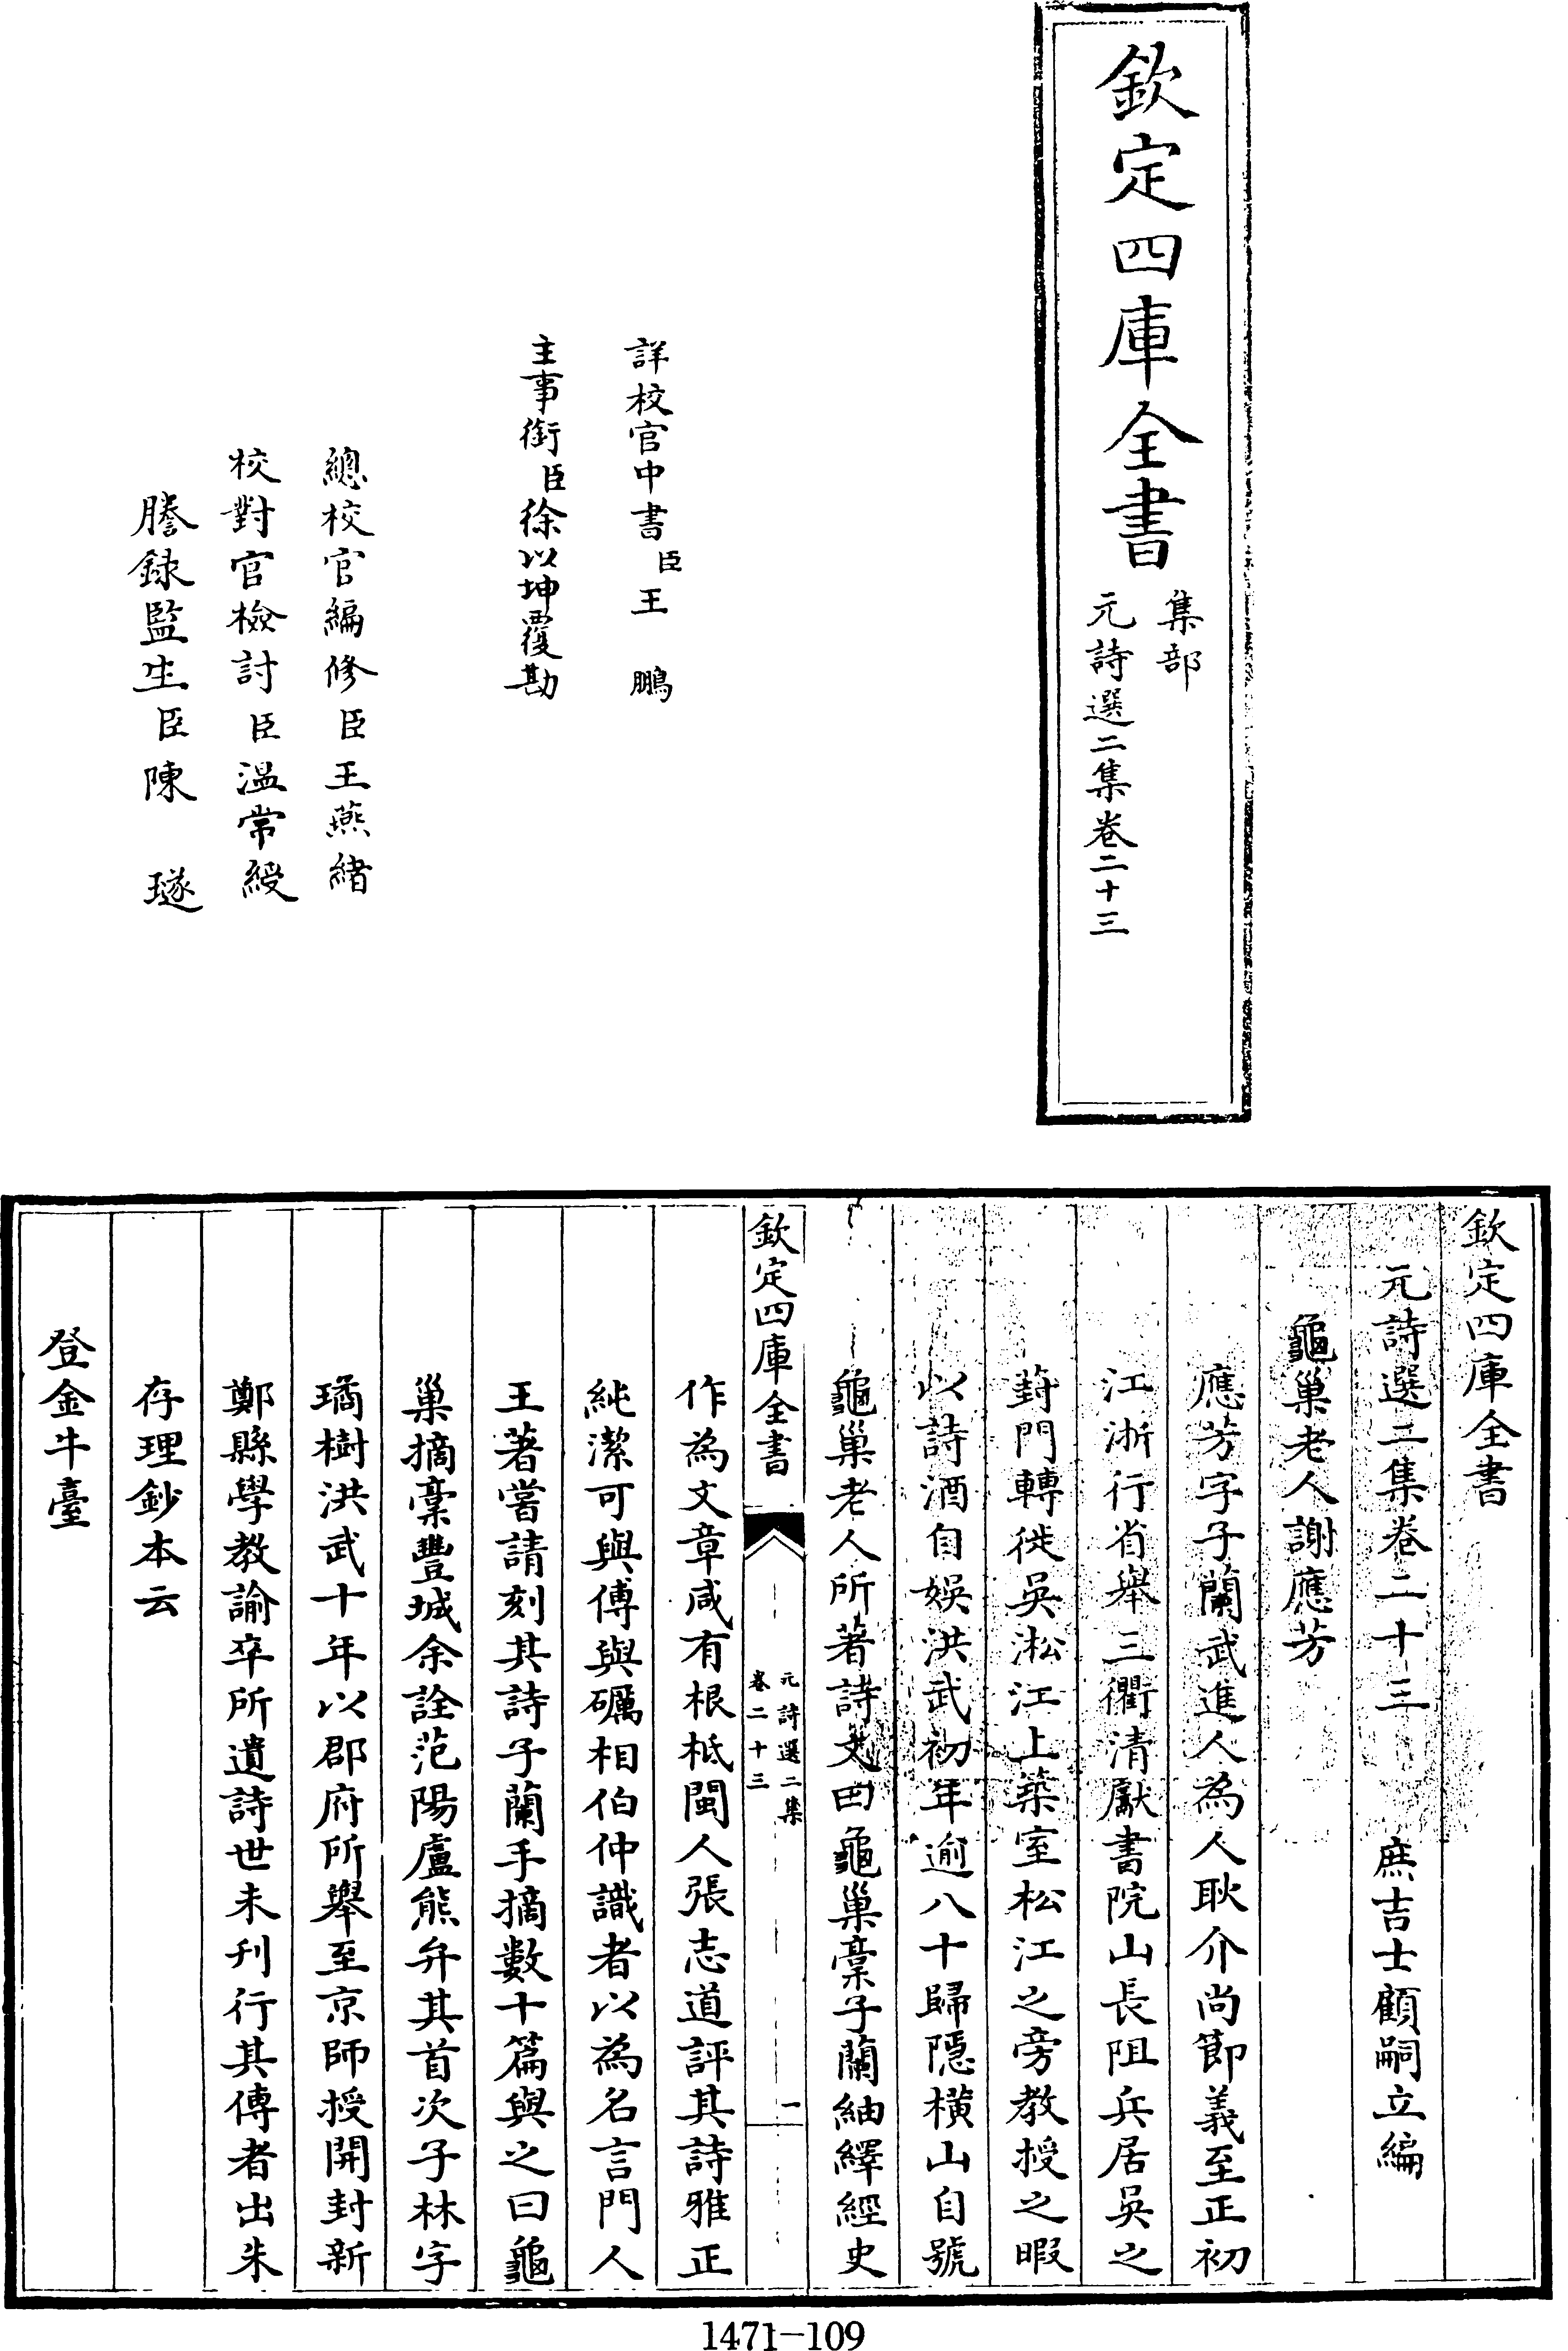 欽定四庫全書
集部
元詩選二集卷二十三
詳校官中書臣王鵬
主事銜臣徐以坤覆勘
總校官編修臣王燕緒
校對官檢討臣溫常綬
謄録監生臣陳璲
欽定四庫全書
元詩選二集卷二十三 庶吉士顧嗣立編
龜巢老人謝應芳
應芳字子蘭武進人為人耿介尚節義至正初
江浙行省舉三衢清獻書院山長阻兵居吳之
葑門轉徙吳淞江上築室松江之旁教授之暇
以詩酒自娛洪武初年逾八十歸隱橫山自號
龜巢老人所著詩文曰龜巢稾子蘭紬繹經史
欽定四庫全書
元詩選二集
卷二十三
一
作為文章咸有根柢閩人張志道評其詩雅正
純潔可與傅與礪相伯仲識者以為名言門人
王著嘗請刻其詩子蘭手摘數十篇與之曰龜
巢摘稾豐城余詮范陽盧熊弁其首次子林字
璚樹洪武十年以郡府所舉至京師授開封新
鄭縣學教諭卒所遺詩世未刊行其傳者出朱
存理鈔本云
登金牛臺
1471-109